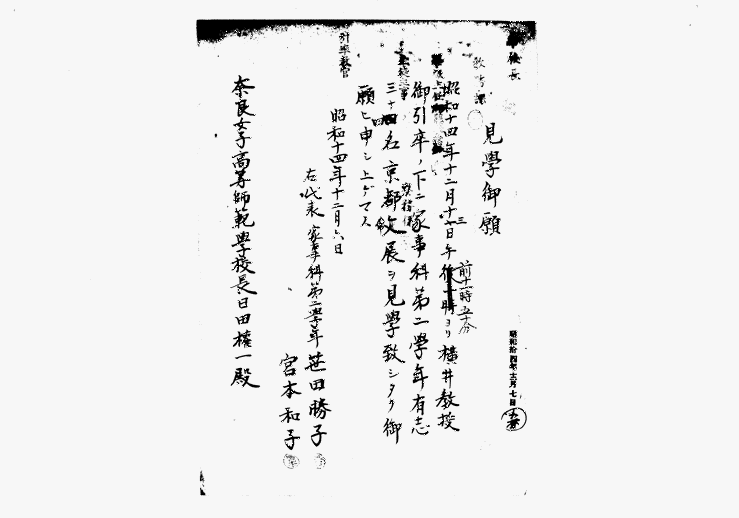 校長
教務課
見學御願
昭和十四年十二月十三日午前十一時五十分ヨリ横井教授
御引卒ノ下ニ家事科第二學年有志
三十四名京都文展ヲ見學致シタク御
願ヒ申シ上ゲマス
引率教官
昭和十四年十二月六日
右代表 家事科第二學年 笹田勝子
宮本和子
奈良女子高等師範學校長日田權一殿
昭和拾四年十二月七日